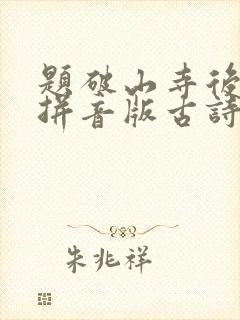 題破山寺後
拼音版古詩
朱兆祥